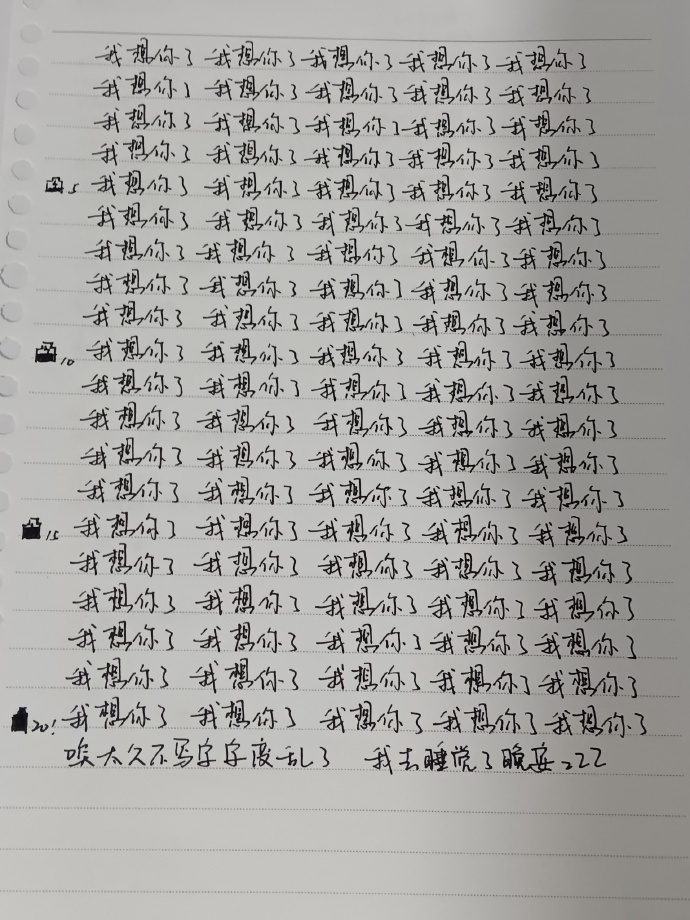 我想你了 我想你了 我想你了 我想你了 我想你了
我想你了 我想你了 我想你了 我想你了 我想你了
我想你了 我想你了 我想你了 我想你了 我想你了
我想你了 我想你了 我想你了 我想你了 我想你了
5 我想你了 我想你了 我想你了 我想你了 我想你了
我想你了 我想你了 我想你了 我想你了 我想你了
我想你了 我想你了 我想你了 我想你了 我想你了
我想你了 我想你了 我想你了 我想你了 我想你了
我想你了 我想你了 我想你了 我想你了 我想你了
10 我想你了 我想你了 我想你了 我想你了 我想你了
我想你了 我想你了 我想你了 我想你了 我想你了
我想你了 我想你了 我想你了 我想你了 我想你了
我想你了 我想你了 我想你了 我想你了 我想你了
我想你了 我想你了 我想你了 我想你了 我想你了
15 我想你了 我想你了 我想你了 我想你了 我想你了
我想你了 我想你了 我想你了 我想你了 我想你了
我想你了 我想你了 我想你了 我想你了 我想你了
我想你了 我想你了 我想你了 我想你了 我想你了
我想你了 我想你了 我想你了 我想你了 我想你了
20! 我想你了 我想你了 我想你了 我想你了 我想你了
唉太久不写字字变乱了 我去睡觉了晚安zzZZ